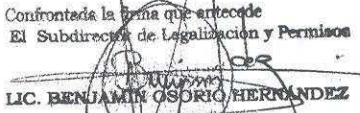 Confrontada la firma que antecede
El Subdirector de Legalización y Permisos
LIC. BENJAMIN OSORIO HERNANDEZ